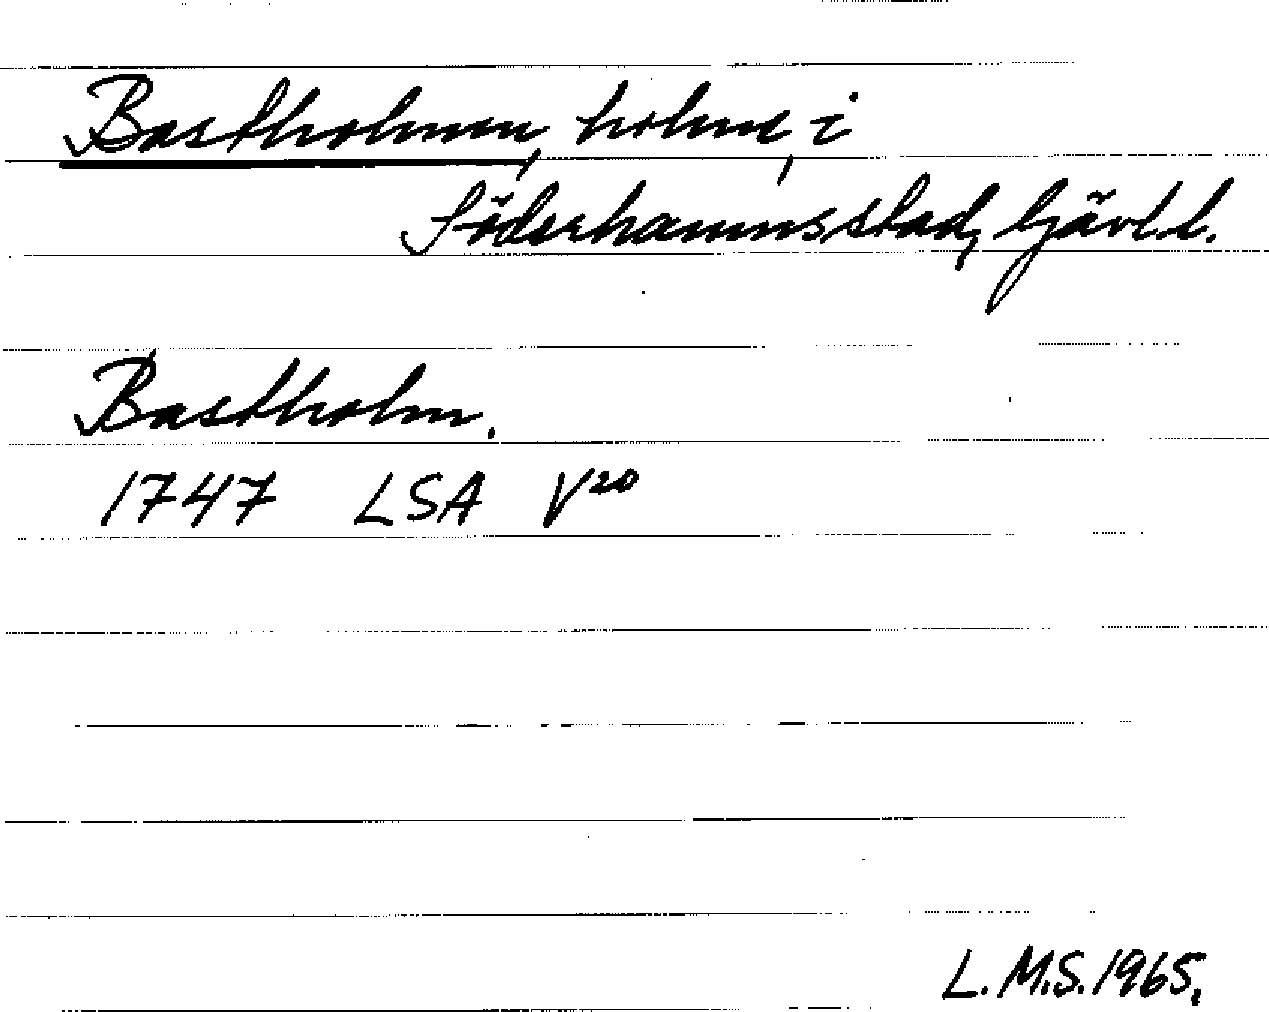 Bastholmen, holme, i
Söderhamns stad, Gävl. l.
Bastholm.
1747 LSA V20
L.M.S. 1965.